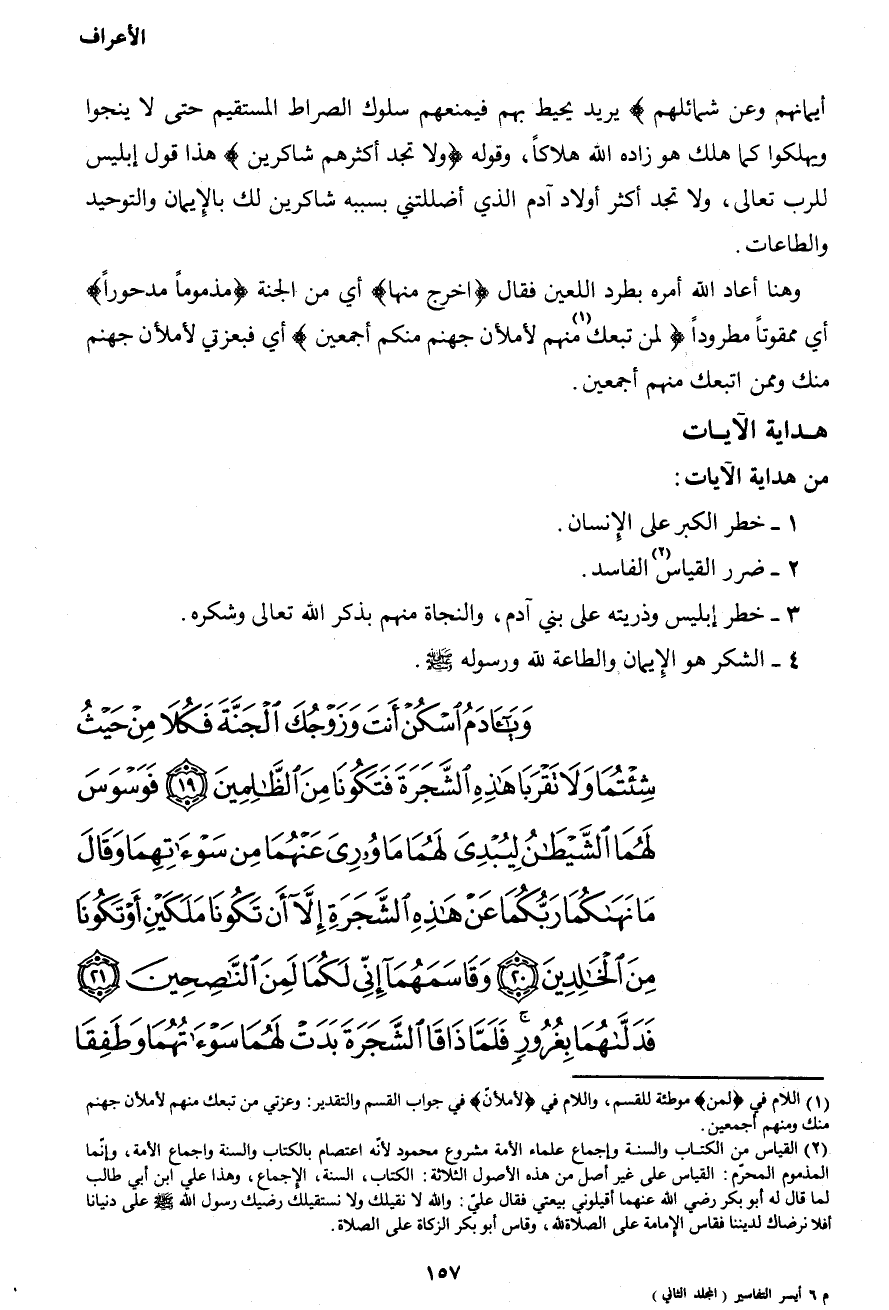 الأعراف
أيمانهم وعن شمائلهم ﴾ يريد يحيط بهم فيمنعهم سلوك الصراط المستقيم حتى لا ينجوا
ويهلكوا كما هلك هو زاده الله هلاكاً، وقوله ﴿ولا تجد أكثرهم شاكرين ﴾ هذا قول إبليس
للرب تعالى، ولا تجد أكثر أولاد آدم الذي أضللتني بسببه شاكرين لك بالإيمان والتوحيد
والطاعات .
وهنا أعاد الله أمره بطرد اللعين فقال ﴿اخرج منها﴾ أي من الجنة ﴿مذموماً مدحوراً﴾
أي ممقوتاً مطروداً ﴿ لمن تبعك(١) منهم لأملأن جهنم منكم أجمعين ﴾ أي فبعزتي لأملأن جهنم
منك وممن اتبعك منهم أجمعين .
هـداية الآيـات
من هداية الآيات :
١ ـ خطر الكبر على الإنسان .
٢ ـ ضرر القياس(٢) الفاسد .
٣ ـ خطر إبليس وذريته على بني آدم، والنجاة منهم بذكر الله تعالى وشكره .
٤ ـ الشكر هو الإيمان والطاعة لله ورسوله ﷺ .
وَيَٰٓـَٔادَمُ ٱسْكُنْ أَنتَ وَزَوْجُكَ ٱلْجَنَّةَ فَكُلَا مِنْ حَيْثُ
شِئْتُمَا وَلَا تَقْرَبَا هَٰذِهِ ٱلشَّجَرَةَ فَتَكُونَا مِنَ ٱلظَّٰلِمِينَ ١٩ فَوَسْوَسَ
لَهُمَا ٱلشَّيْطَٰنُ لِيُبْدِىَ لَهُمَا مَا وُۥرِىَ عَنْهُمَا مِن سَوْءَٰتِهِمَا وَقَالَ
مَا نَهَىٰكُمَا رَبُّكُمَا عَنْ هَٰذِهِ ٱلشَّجَرَةِ إِلَّآ أَن تَكُونَا مَلَكَيْنِ أَوْ تَكُونَا
مِنَ ٱلْخَٰلِدِينَ ٢٠ وَقَاسَمَهُمَآ إِنِّى لَكُمَا لَمِنَ ٱلنَّٰصِحِينَ ٢١
فَدَلَّىٰهُمَا بِغُرُورٍ ۚ فَلَمَّا ذَاقَا ٱلشَّجَرَةَ بَدَتْ لَهُمَا سَوْءَٰتُهُمَا وَطَفِقَا
(١) اللام في ﴿لمن﴾ موطئة للقسم، واللام في ﴿لأملأنّ﴾ في جواب القسم والتقدير: وعزتي من تبعك منهم لأملأن جهنم
منك ومنهم أجمعين.
(٢) القياس من الكتـاب والسنـة وإجماع علماء الأمة مشروع محمود لأنّه اعتصام بالكتاب والسنة واجماع الأمة، وإنّما
المذموم المحرّم : القياس على غير أصل من هذه الأصول الثلاثة: الكتاب، السنة، الإجماع، وهذا علي ابن أبي طالب
لما قال له أبو بكر رضي الله عنهما أقيلوني بيعتي فقال عليّ : والله لا نقيلك ولا نستقيلك رضيك رسول الله ﷺ على دنيانا
أفلا نرضاك لديننا فقاس الإمامة على الصلاةلله، وقاس أبو بكر الزكاة على الصلاة.
١٥٧
م ٦ أيسر التفاسير ( المجلد الثاني )